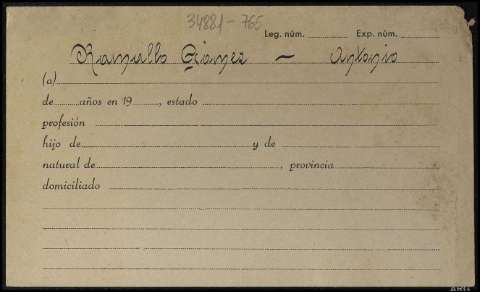 34881-765
Leg. núm. Exp. núm.
Ramullo Gómez — Antonio
(a)
de años en 19 , estado
profesión
hijo de y de
natural de , provincia
domiciliado